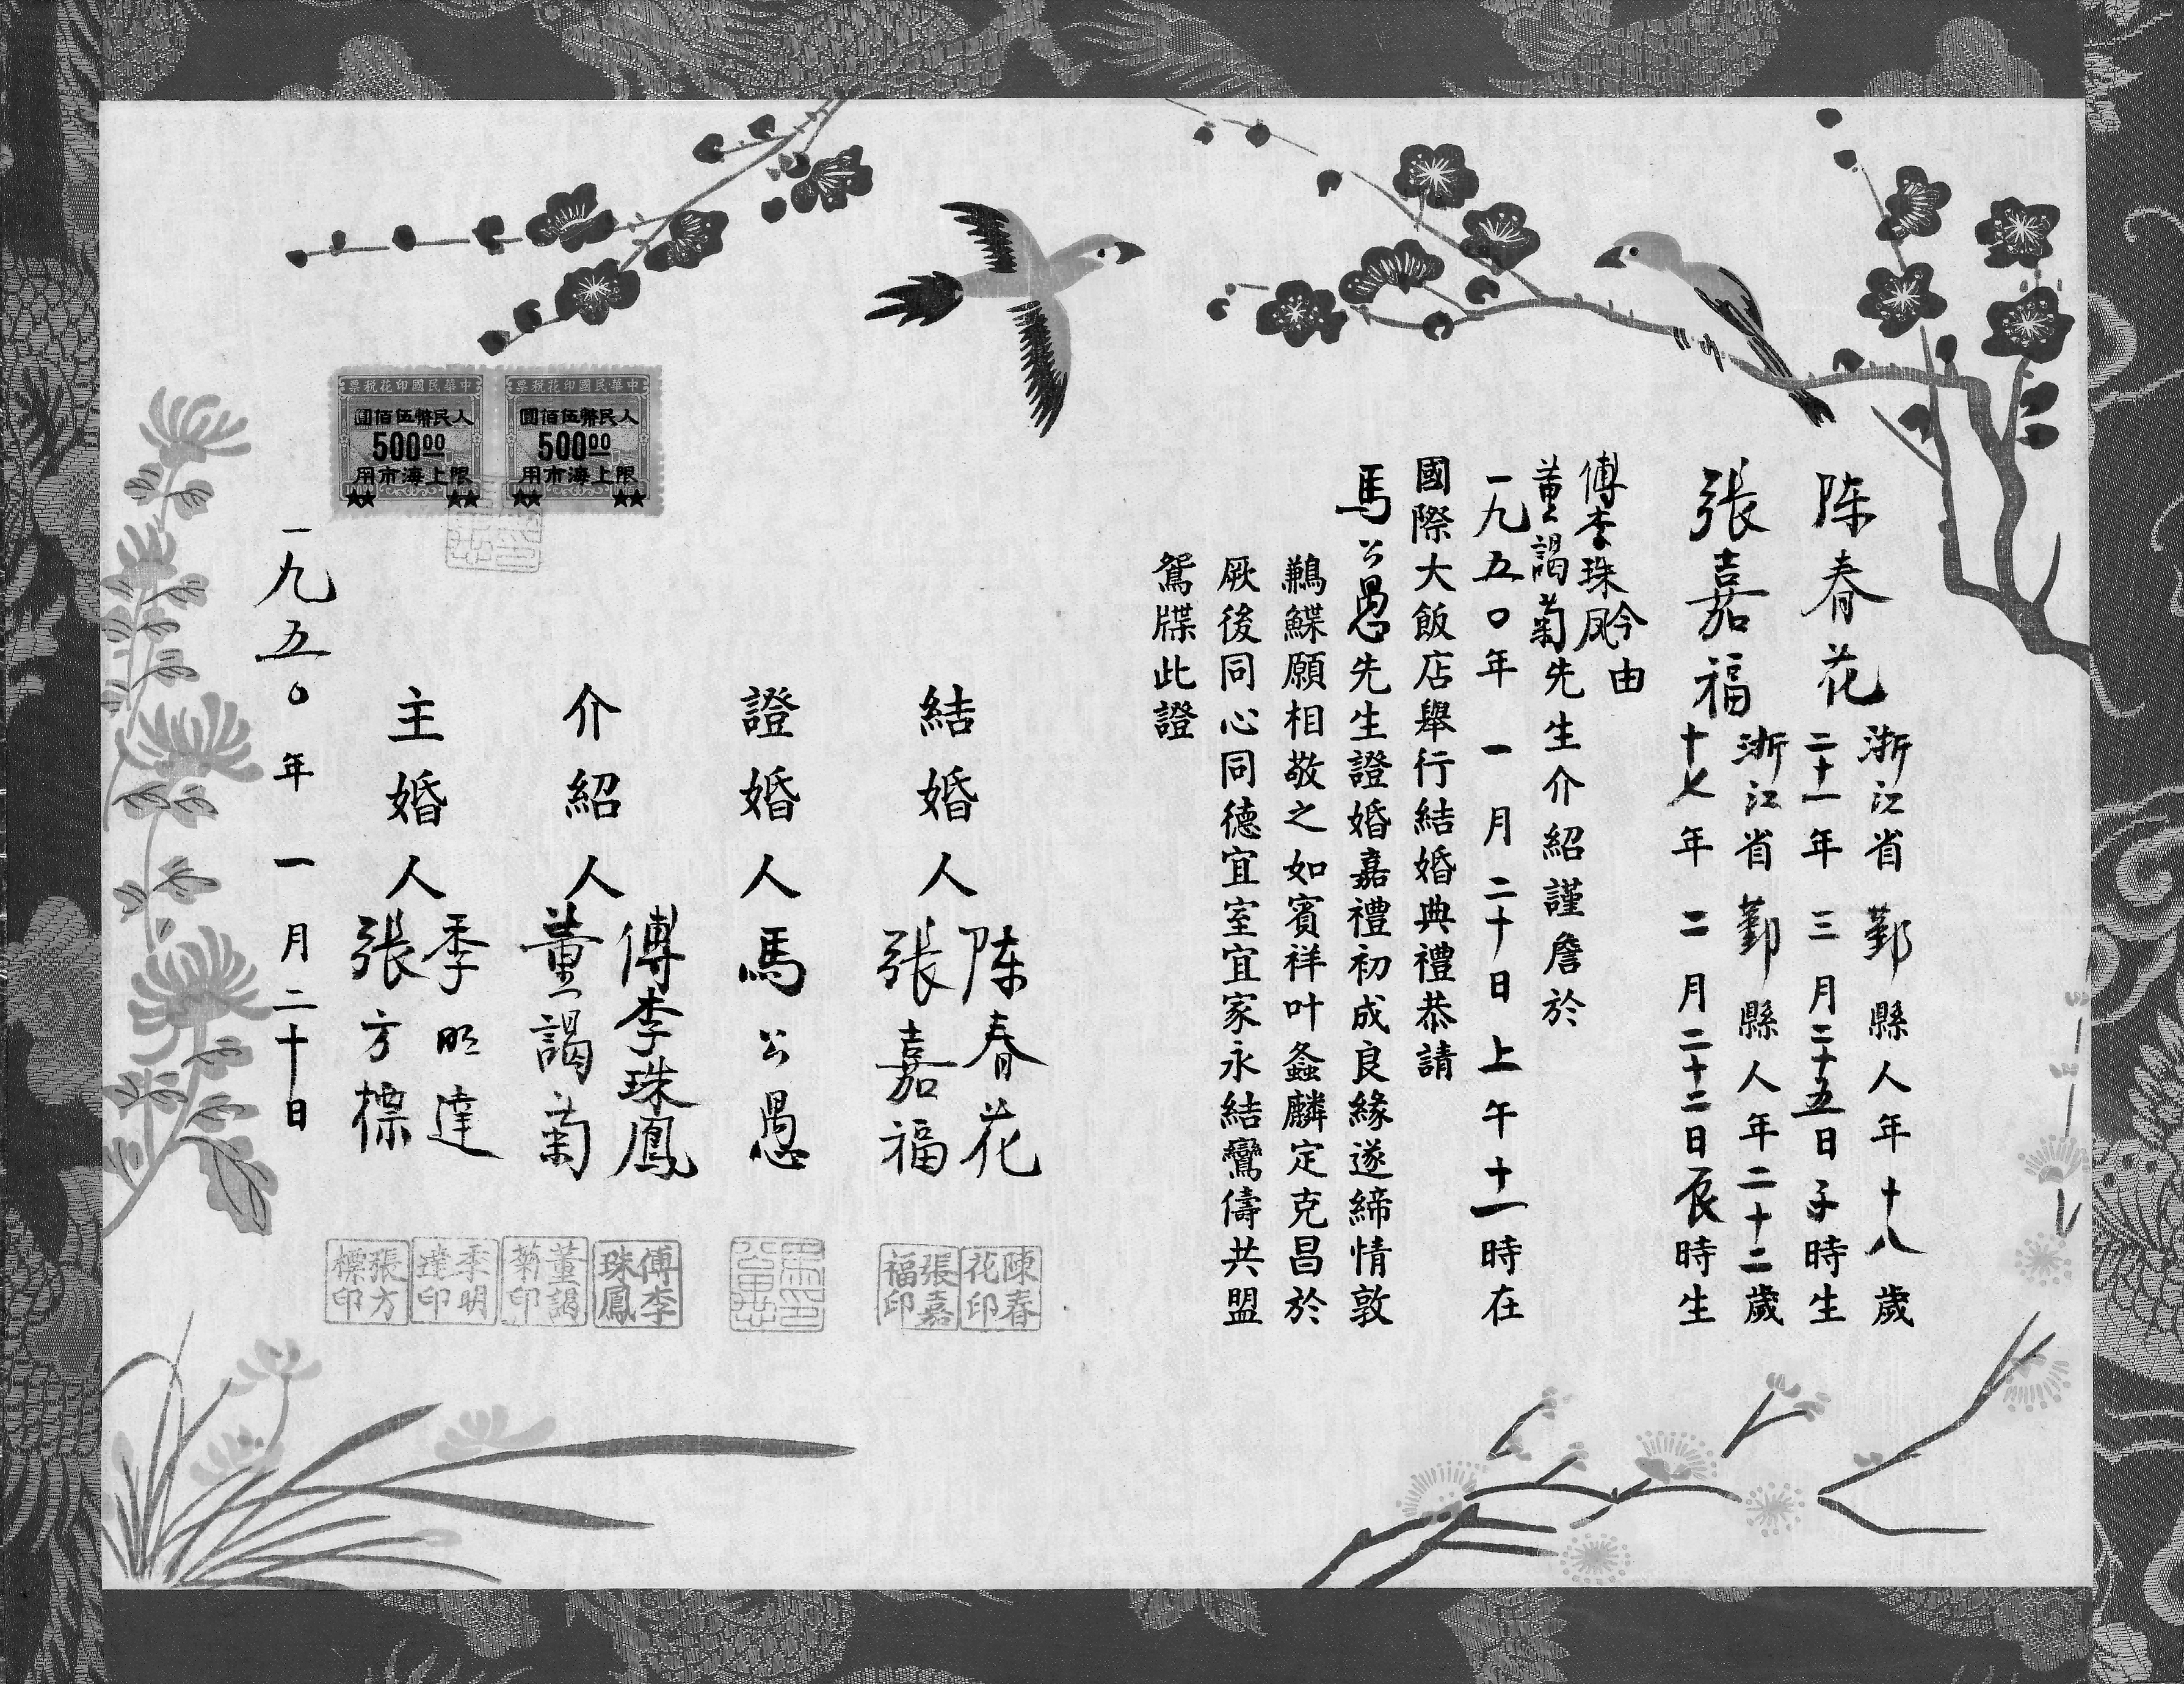 陈春花 浙江省鄞縣人年十八歲
二十一年三月二十五日子時生
張嘉福 浙江省鄞縣人年二十二歲
十七年二月二十二日辰時生
今由
傅李珠凤
董謁菊先生介紹謹詹於
一九五〇年一月二十日上午十一時在
國際大飯店舉行結婚典禮恭請
馬公愚先生證婚嘉禮初成良緣遂締情敦
鶼鰈願相敬之如賓祥叶螽麟定克昌於
厥後同心同德宜室宜家永結鸞儔共盟
鴛牒此證
結婚人
陈春花
張嘉福
證婚人
馬公愚
介紹人
傅李珠鳳
董謁菊
主婚人
季明達
張方標
一九五〇年一月二十日
中華民國印花稅票
人民幣伍佰圓
500.00
限上海市用
中華民國印花稅票
人民幣伍佰圓
500.00
限上海市用
陳春花印
張嘉福印
傅李珠鳳
董謁菊印
季明達印
張方標印